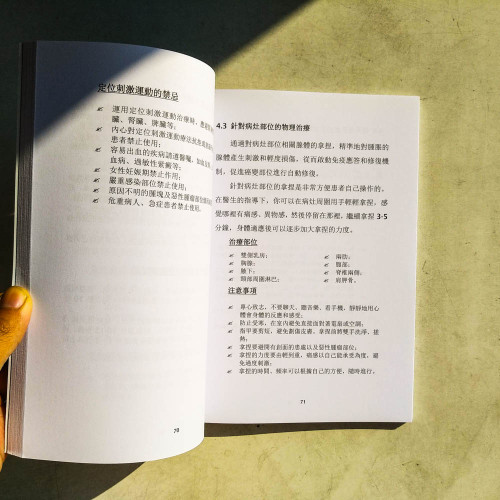 定位刺激運動的禁忌
運用定位刺激運動治療時，應
臟、腎臟、脾臟等；
內心對定位刺激運動療法
患者禁止使用；
容易出血的疾病請遵醫囑，如
血病、過敏性紫癜等；
女性妊娠期禁止作用；
嚴重感染部位禁止使用；
原因不明的腫塊及惡性腫瘤部
危重病人、急症患者禁止使用。
70
4.3 針對病灶部位的物理治療
通過對病灶部位相關腺體的拿捏，精準地對腫脹的
腺體產生刺激和輕度損傷，從而啟動免疫應答和修復機
制，促進癌變部位進行自動修復。
針對病灶部位的拿捏是非常方便患者自己操作的。
在醫生的指導下，你可以在病灶周圍用手輕輕拿捏，感
覺哪裡有痛感、異物感，然後停留在那裡，繼續拿捏 3-5
分鐘，身體適應後可以逐步加大拿捏的力度。
治療部位
雙側乳房；
兩肋；
胸腺；
腹部；
腋下；
脊椎兩側；
頸部周圍淋巴；
肩胛骨。
注意事項
專心致志，不要聊天、聽音樂、看手機，靜靜地用心
體會身體的反應和感度；
防止受寒：在室內避免直接面對著電扇或空調。
指甲要剪短，避免劃傷皮膚，拿捏前將雙手洗淨、搓
熱；
拿捏要避開有創面的患處以及惡性腫瘤部位；
拿捏的力度要由輕到重，痛感以自己能承受為度，避
免過度刺激；
拿捏的時間、頻率可以根據自己的方便，隨時進行。
71